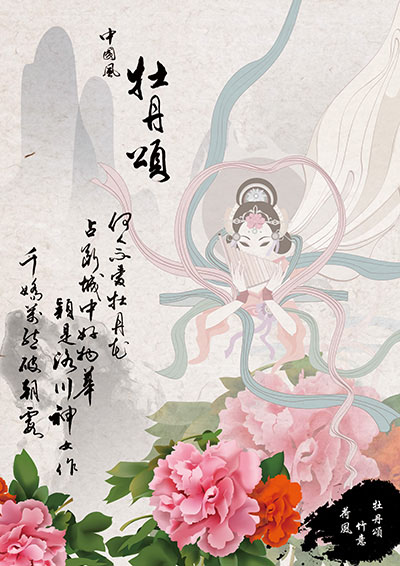 中國風
牡丹頌
何人不愛牡丹花
占斷城中好物華
疑是洛川神女作
千嬌萬態破朝霞
牡丹頌
竹意
荷風